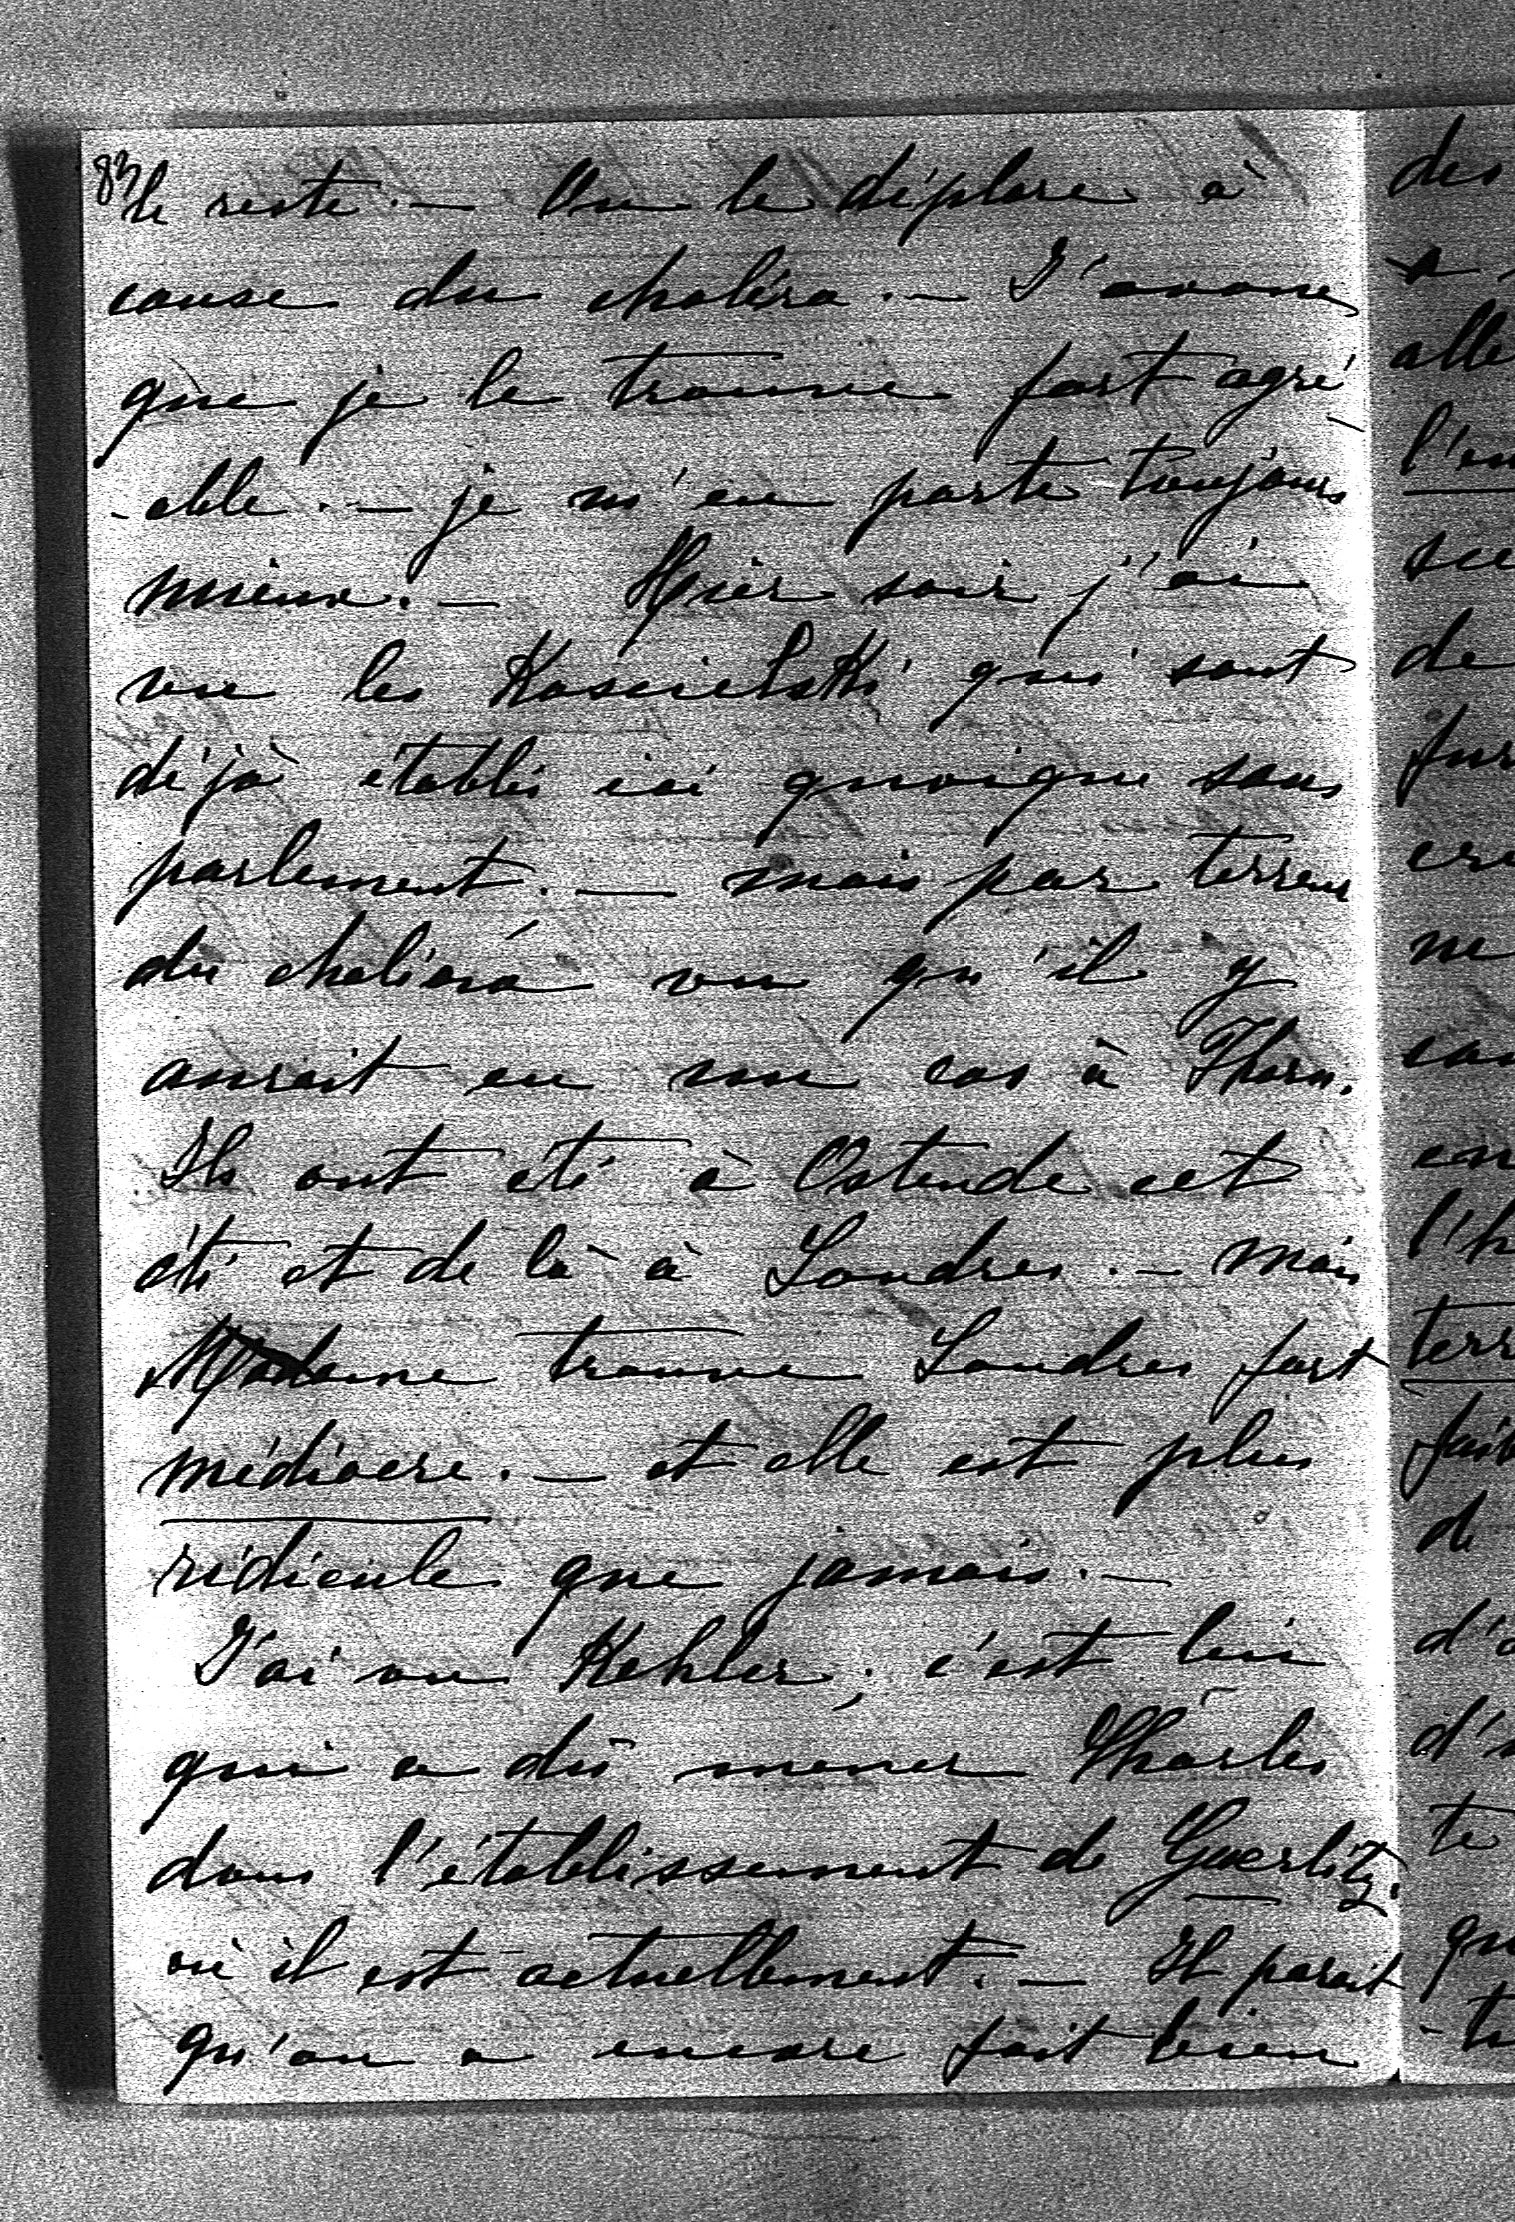 83
le reste. — On le déplore à
cause du choléra. — J'avoue
que je le trouve fort agré
-able. — je m'en porte toujours
mieux. — Hier soir j'ai
vu les Koscielski qui sont
déjà établis ici quoique sans
parlement. — mais par terreur
du choléra vu qu'il y
aurait eu un cas à Thorn.
Ils ont été à Ostende cet
été et de là à Londres. — mais
Madame trouve Londres fort
médiocre. — et elle est plus
ridicule que jamais. —
J'ai vu Kehler; c'est lui
qui a dû mener Charles
dans l'établissement de Goerlitz.
où il est actuellement. — Il parait
qu'on a encore fait bien
des
a
alle
l'en
de
fur
ne
en
l'h
terr
de
d'a
te